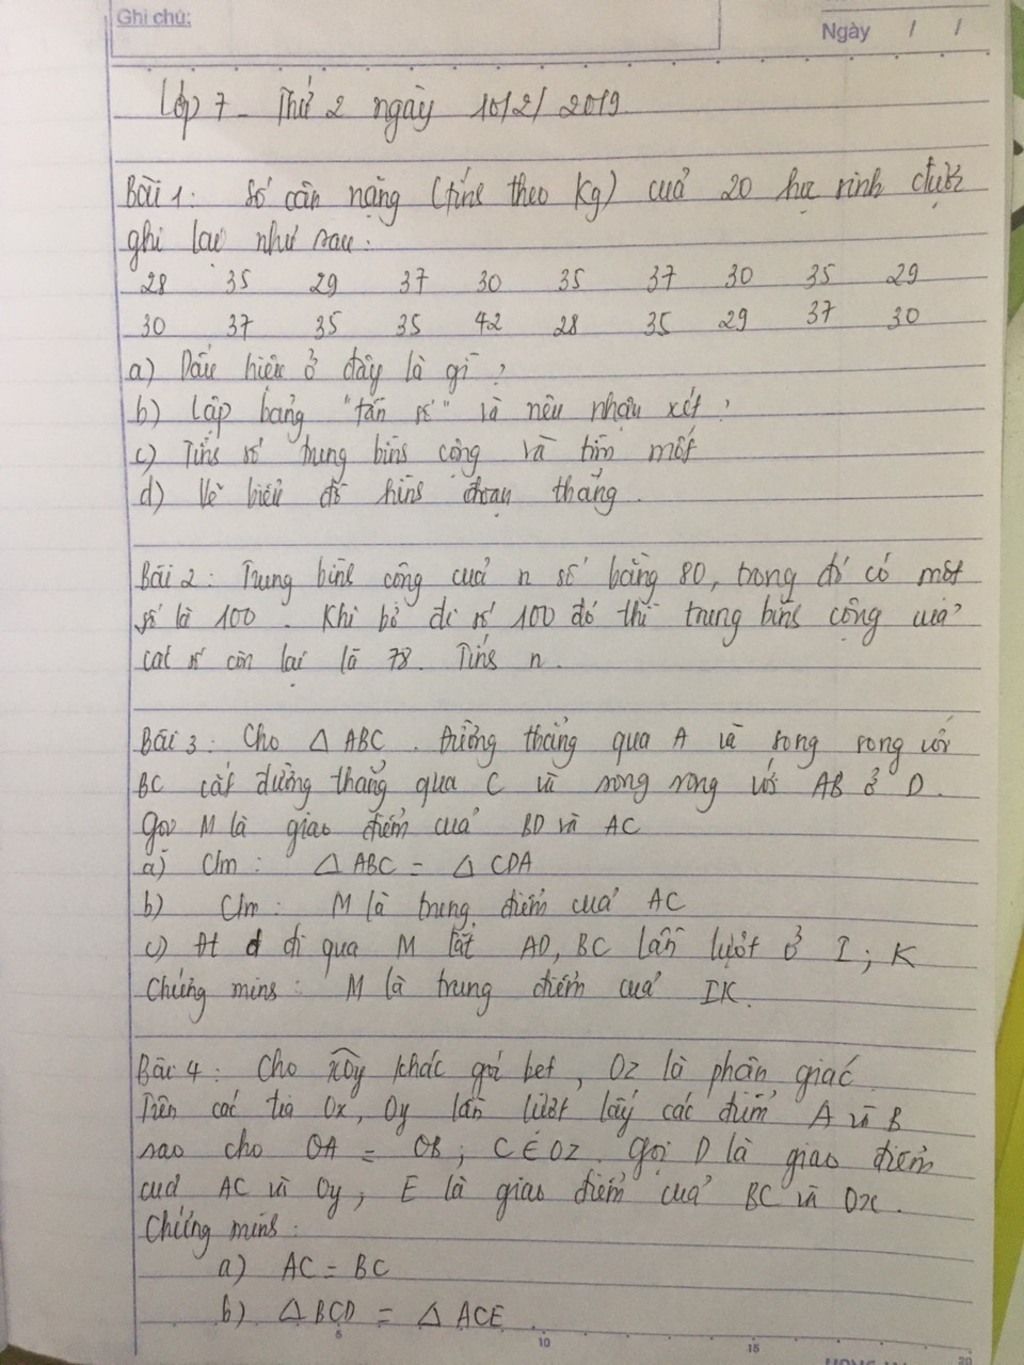 Ghi chú:
Ngày / /
Lớp 7 - Thứ 2 ngày 10/2/2019
Bài 1: Số cân nặng (tính theo Kg) của 20 học sinh được
ghi lại như sau:
28 35 29 37 30 35 37 30 35 29
30 37 35 35 42 28 35 29 37 30
a) Dấu hiệu ở đây là gì?
b) Lập bảng "tần số" và nêu nhận xét?
c) Tính số trung bình cộng và tìm mốt
d) Vẽ biểu đồ hình đoạn thẳng.
Bài 2: Trung bình cộng của n số bằng 80, trong đó có một
số là 100. Khi bỏ đi số 100 đó thì trung bình cộng của
các số còn lại là 78. Tính n.
Bài 3: Cho △ ABC. Đường thẳng qua A và song song với
BC cắt đường thẳng qua C và song song với AB ở D.
Gọi M là giao điểm của BD và AC
a) C/m: △ ABC = △ CDA
b) C/m: M là trung điểm của AC
c) Đt d đi qua M cắt AD, BC lần lượt ở I; K
Chứng minh: M là trung điểm của IK.
Bài 4: Cho xOy khác góc bẹt, Oz là phân giác
Trên các tia Ox, Oy lần lượt lấy các điểm A và B
sao cho OA = OB; C ∈ Oz. Gọi D là giao điểm
của AC và Oy, E là giao điểm của BC và Ox.
Chứng minh:
a) AC = BC
b) △ BCD = △ ACE.
5 10 15 20